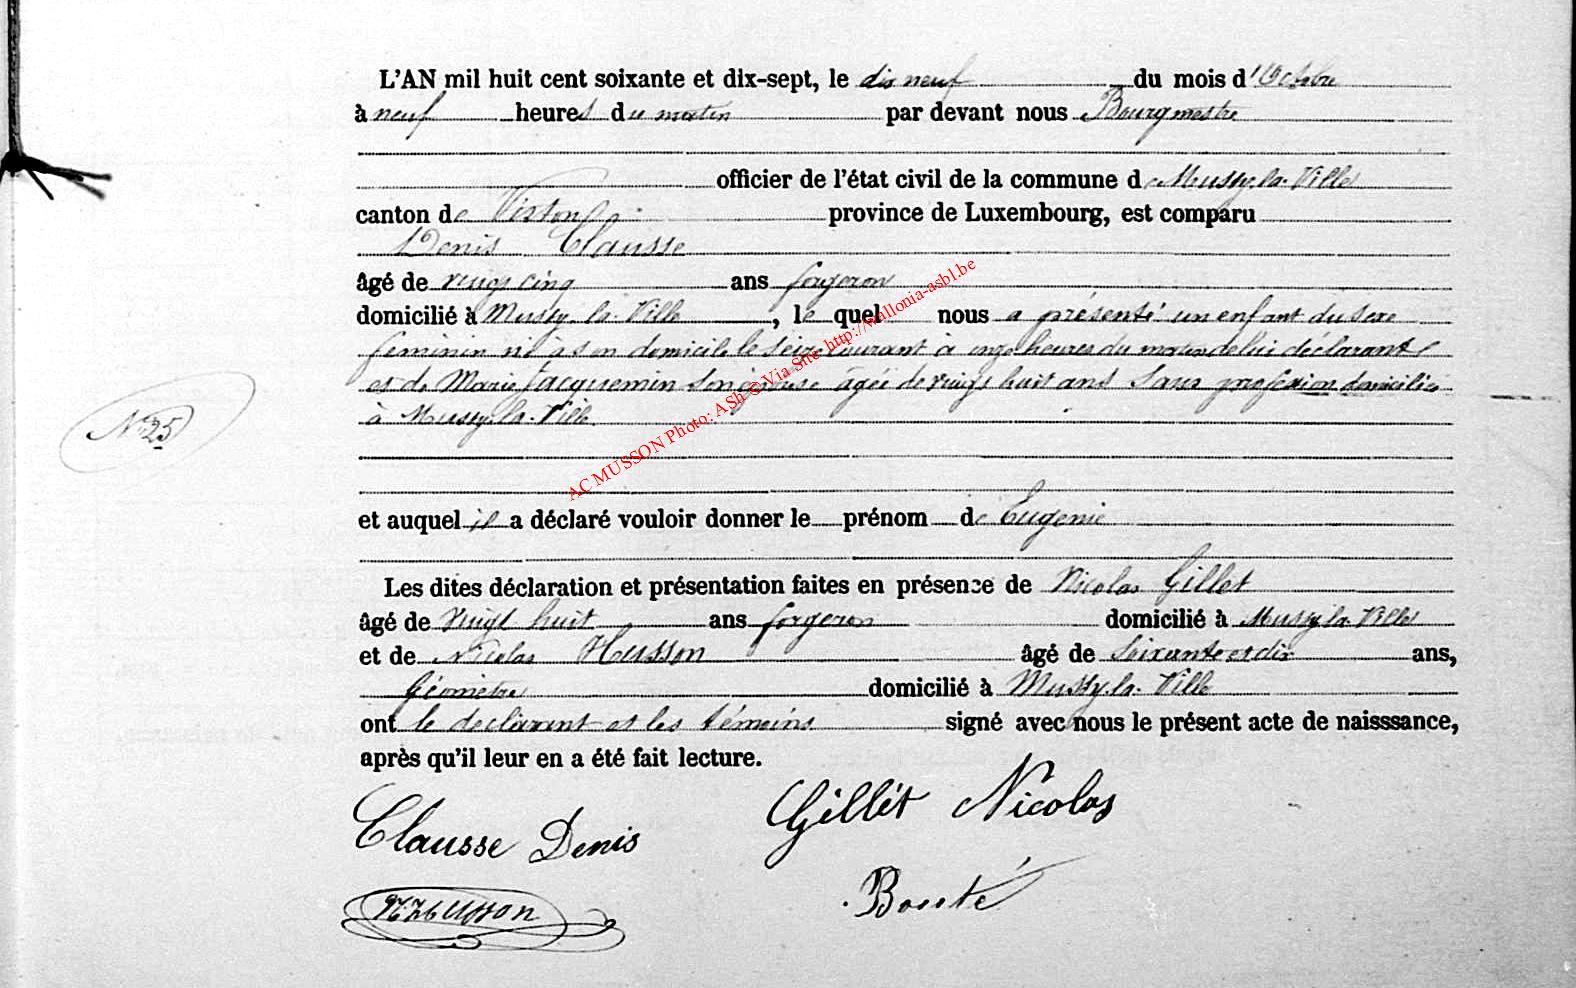 L'AN mil huit cent soixante et dix-sept, le dix neuf du mois d'Octobre
à neuf heures du matin par devant nous Bourgmestre
officier de l'état civil de la commune de Mussy-la-Ville
canton de Virton province de Luxembourg, est comparu
Denis Clausse
âgé de vingt cinq ans forgeron
domicilié à Mussy-la-Ville, le quel nous a présenté un enfant du sexe
feminin né à son domicile le seize courant à onze heures du matin de lui déclarant
et de Marie Jacquemin son épouse âgée de vingt huit ans sans profession domiciliée
à Mussy-la-Ville.
N° 25
et auquel il a déclaré vouloir donner le prénom de Eugenie
Les dites déclaration et présentation faites en présence de Nicolas Gillet
âgé de vingt huit ans forgeron domicilié à Mussy-la-Ville
et de Nicolas Husson âgé de Soixante et dix ans,
Géomètre domicilié à Mussy-la-Ville
ont le déclarant et les témoins signé avec nous le présent acte de naisssance,
après qu'il leur en a été fait lecture.
Clausse Denis Gillét Nicolas
N. Husson Bouté
AC MUSSON Photo: ASh © Via Site http://wallonia-asbl.be